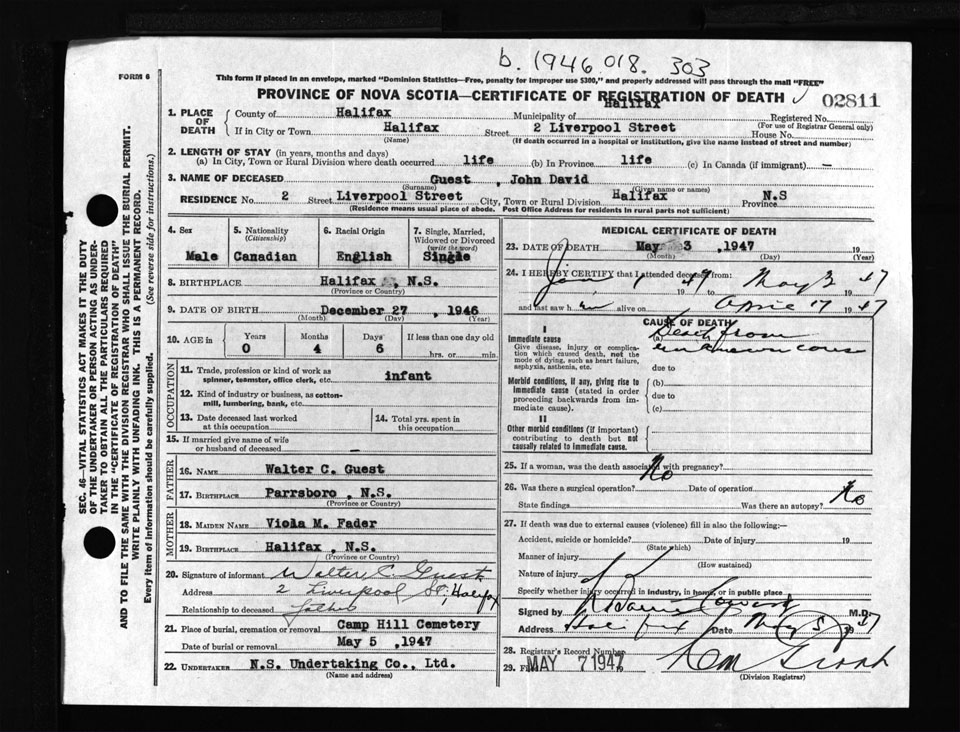 b. 1946 018. 303
FORM 6
This form if placed in an envelope, marked "Dominion Statistics—Free, penalty for improper use $300," and properly addressed will pass through the mail "FREE"
PROVINCE OF NOVA SCOTIA—CERTIFICATE OF REGISTRATION OF DEATH
02811
SEC. 46—VITAL STATISTICS ACT MAKES IT THE DUTY
OF THE UNDERTAKER OR PERSON ACTING AS UNDER-
TAKER TO OBTAIN ALL THE PARTICULARS REQUIRED
IN THE "CERTIFICATE OF REGISTRATION OF DEATH"
AND TO FILE THE SAME WITH THE DIVISION REGISTRAR WHO SHALL ISSUE THE BURIAL PERMIT.
WRITE PLAINLY WITH UNFADING INK. THIS IS A PERMANENT RECORD.
Every item of information should be carefully supplied. (See reverse side for instructions.)
1. PLACE OF DEATH
County of Halifax Municipality of Halifax Registered No.
(For use of Registrar General only)
If in City or Town Halifax Street 2 Liverpool Street House No.
(Name) (If death occurred in a hospital or institution, give the name instead of street and number)
2. LENGTH OF STAY (in years, months and days)
(a) In City, Town or Rural Division where death occurred life (b) In Province life (c) In Canada (if immigrant) —
3. NAME OF DECEASED Guest , John David
(Surname) (Given name or names)
RESIDENCE No. 2 Street Liverpool Street City, Town or Rural Division Halifax Province N.S
(Residence means usual place of abode. Post Office Address for residents in rural parts not sufficient)
4. Sex Male
5. Nationality (Citizenship) Canadian
6. Racial Origin English
7. Single, Married, Widowed or Divorced (write the word) Single
8. BIRTHPLACE Halifax , N.S.
(Province or Country)
9. DATE OF BIRTH December 27 , 1946
(Month) (Day) (Year)
10. AGE in Years Months Days If less than one day old
0 4 6 hrs. or min.
OCCUPATION
11. Trade, profession or kind of work as spinner, teamster, office clerk, etc. infant
12. Kind of industry or business, as cotton-mill, lumbering, bank, etc.
13. Date deceased last worked at this occupation
14. Total yrs. spent in this occupation
15. If married give name of wife or husband of deceased —
FATHER
16. NAME Walter C. Guest
17. BIRTHPLACE Parrsboro , N.S.
(Province or Country)
MOTHER
18. MAIDEN NAME Viola M. Fader
19. BIRTHPLACE Halifax , N.S.
(Province or Country)
20. Signature of informant Walter C. Guest
Address 2 Liverpool St, Halifax
Relationship to deceased father
21. Place of burial, cremation or removal Camp Hill Cemetery
Date of burial or removal May 5 ,1947
22. UNDERTAKER N.S. Undertaking Co., Ltd.
(Name and address)
MEDICAL CERTIFICATE OF DEATH
23. DATE OF DEATH May 3 ,1947 19
(Month) (Day) (Year)
24. I HEREBY CERTIFY that I attended deceased from:
Jan 1 1947 to May 3 1947
and last saw h im alive on April 17 1947
CAUSE OF DEATH
I
Immediate cause
Give disease, injury or complication which caused death, not the mode of dying, such as heart failure, asphyxia, asthenia, etc.
(a) Death from
unknown cause
due to
Morbid conditions, if any, giving rise to immediate cause (stated in order proceeding backwards from immediate cause).
(b)
due to
(c)
II
Other morbid conditions (if important) contributing to death but not causally related to immediate cause.
25. If a woman, was the death associated with pregnancy? No
26. Was there a surgical operation? Date of operation
State findings Was there an autopsy? No
27. If death was due to external causes (violence) fill in also the following:—
Accident, suicide or homicide? Date of injury 19
(State which)
Manner of injury
(How sustained)
Nature of injury
Specify whether injury occurred in industry, in home, or in public place
Signed by M.D.
Address Halifax Date May 5 1947
28. Registrar's Record Number
29. MAY 7 1947
(Division Registrar)